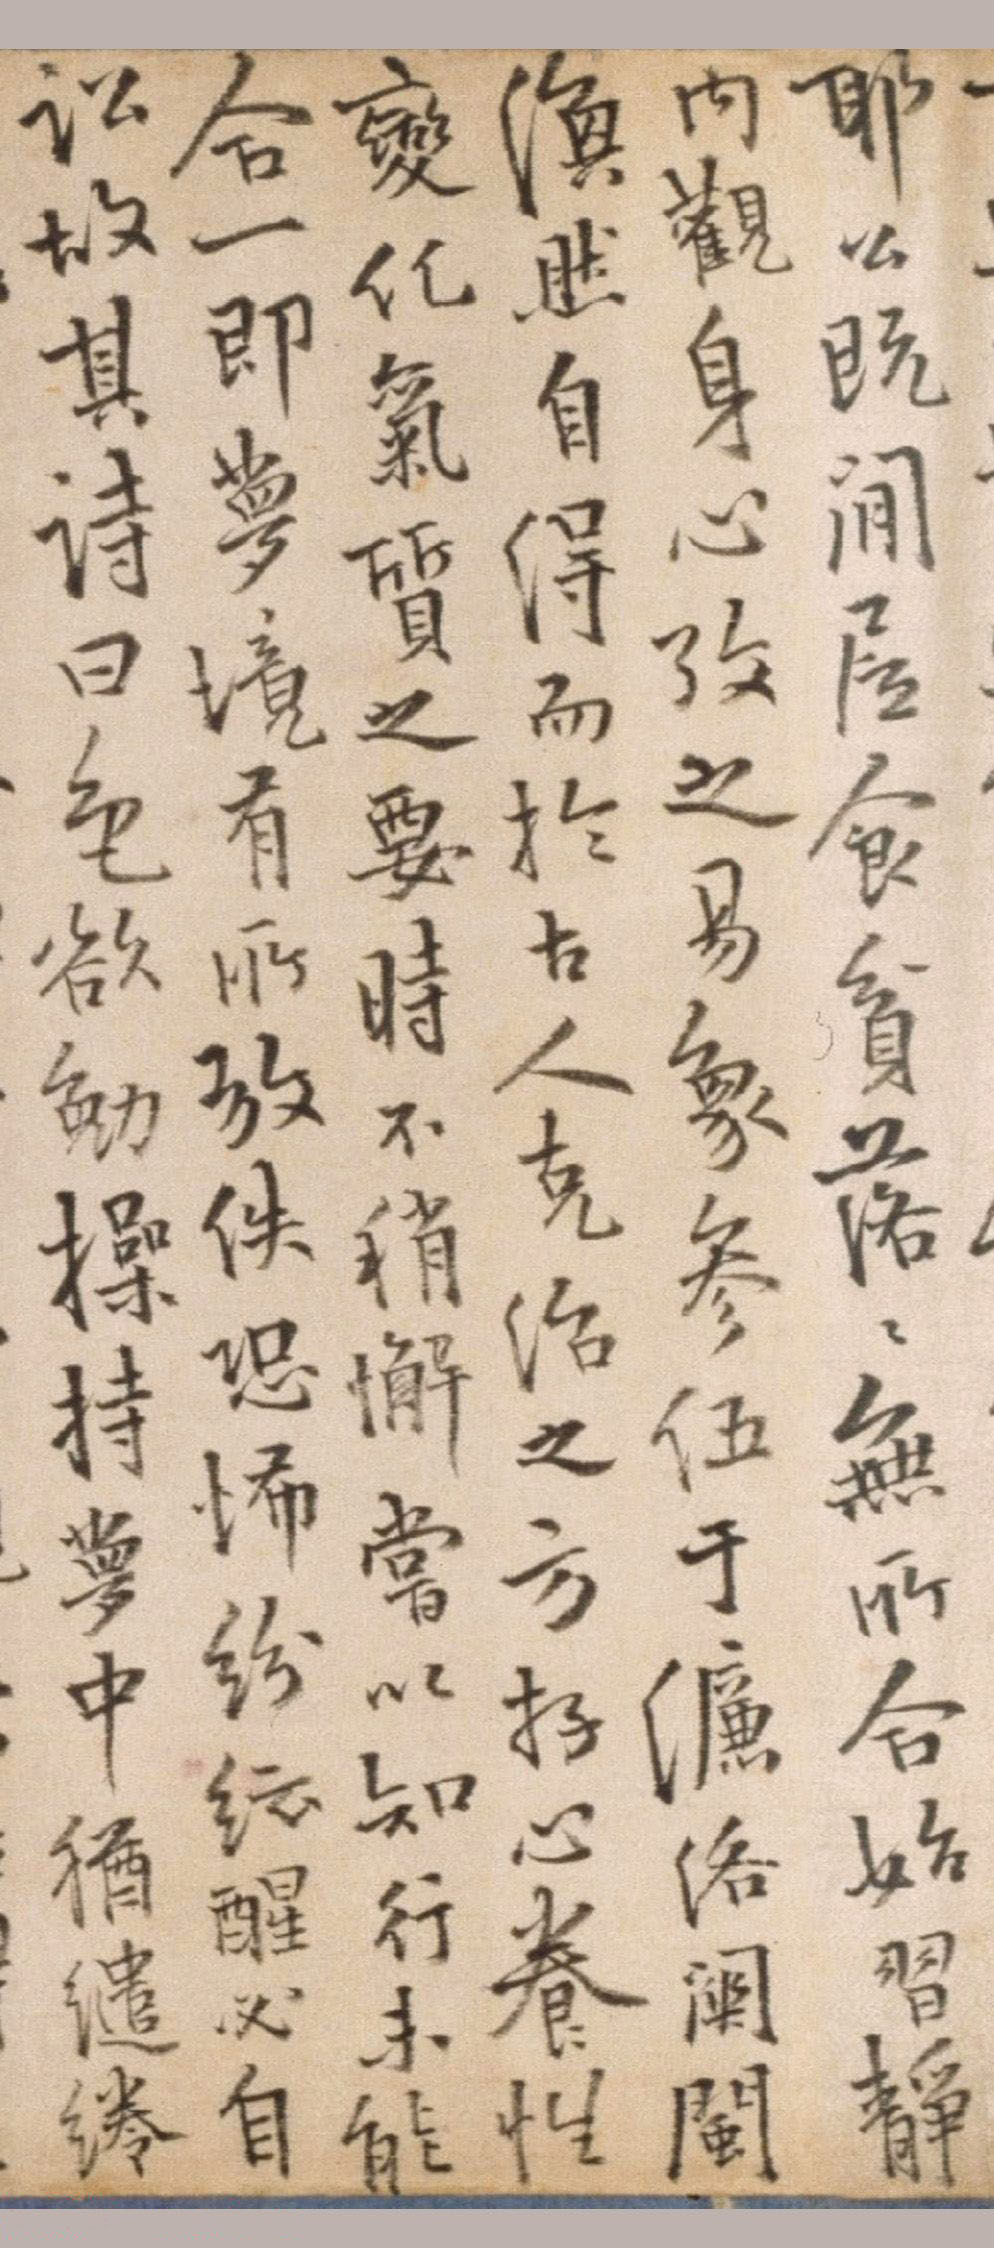 耶公既闲居食貧落〻無所合始習靜
内觀身心攷之易象參伍于濂洛關閩
渙然自得而於古人克治之方存心養性
變化氣質之要時不稍懈嘗以知行未能
合一即夢境有所放佚恐怖紛紜醒必自
訟故其詩曰色欲勉操持夢中猶繾綣